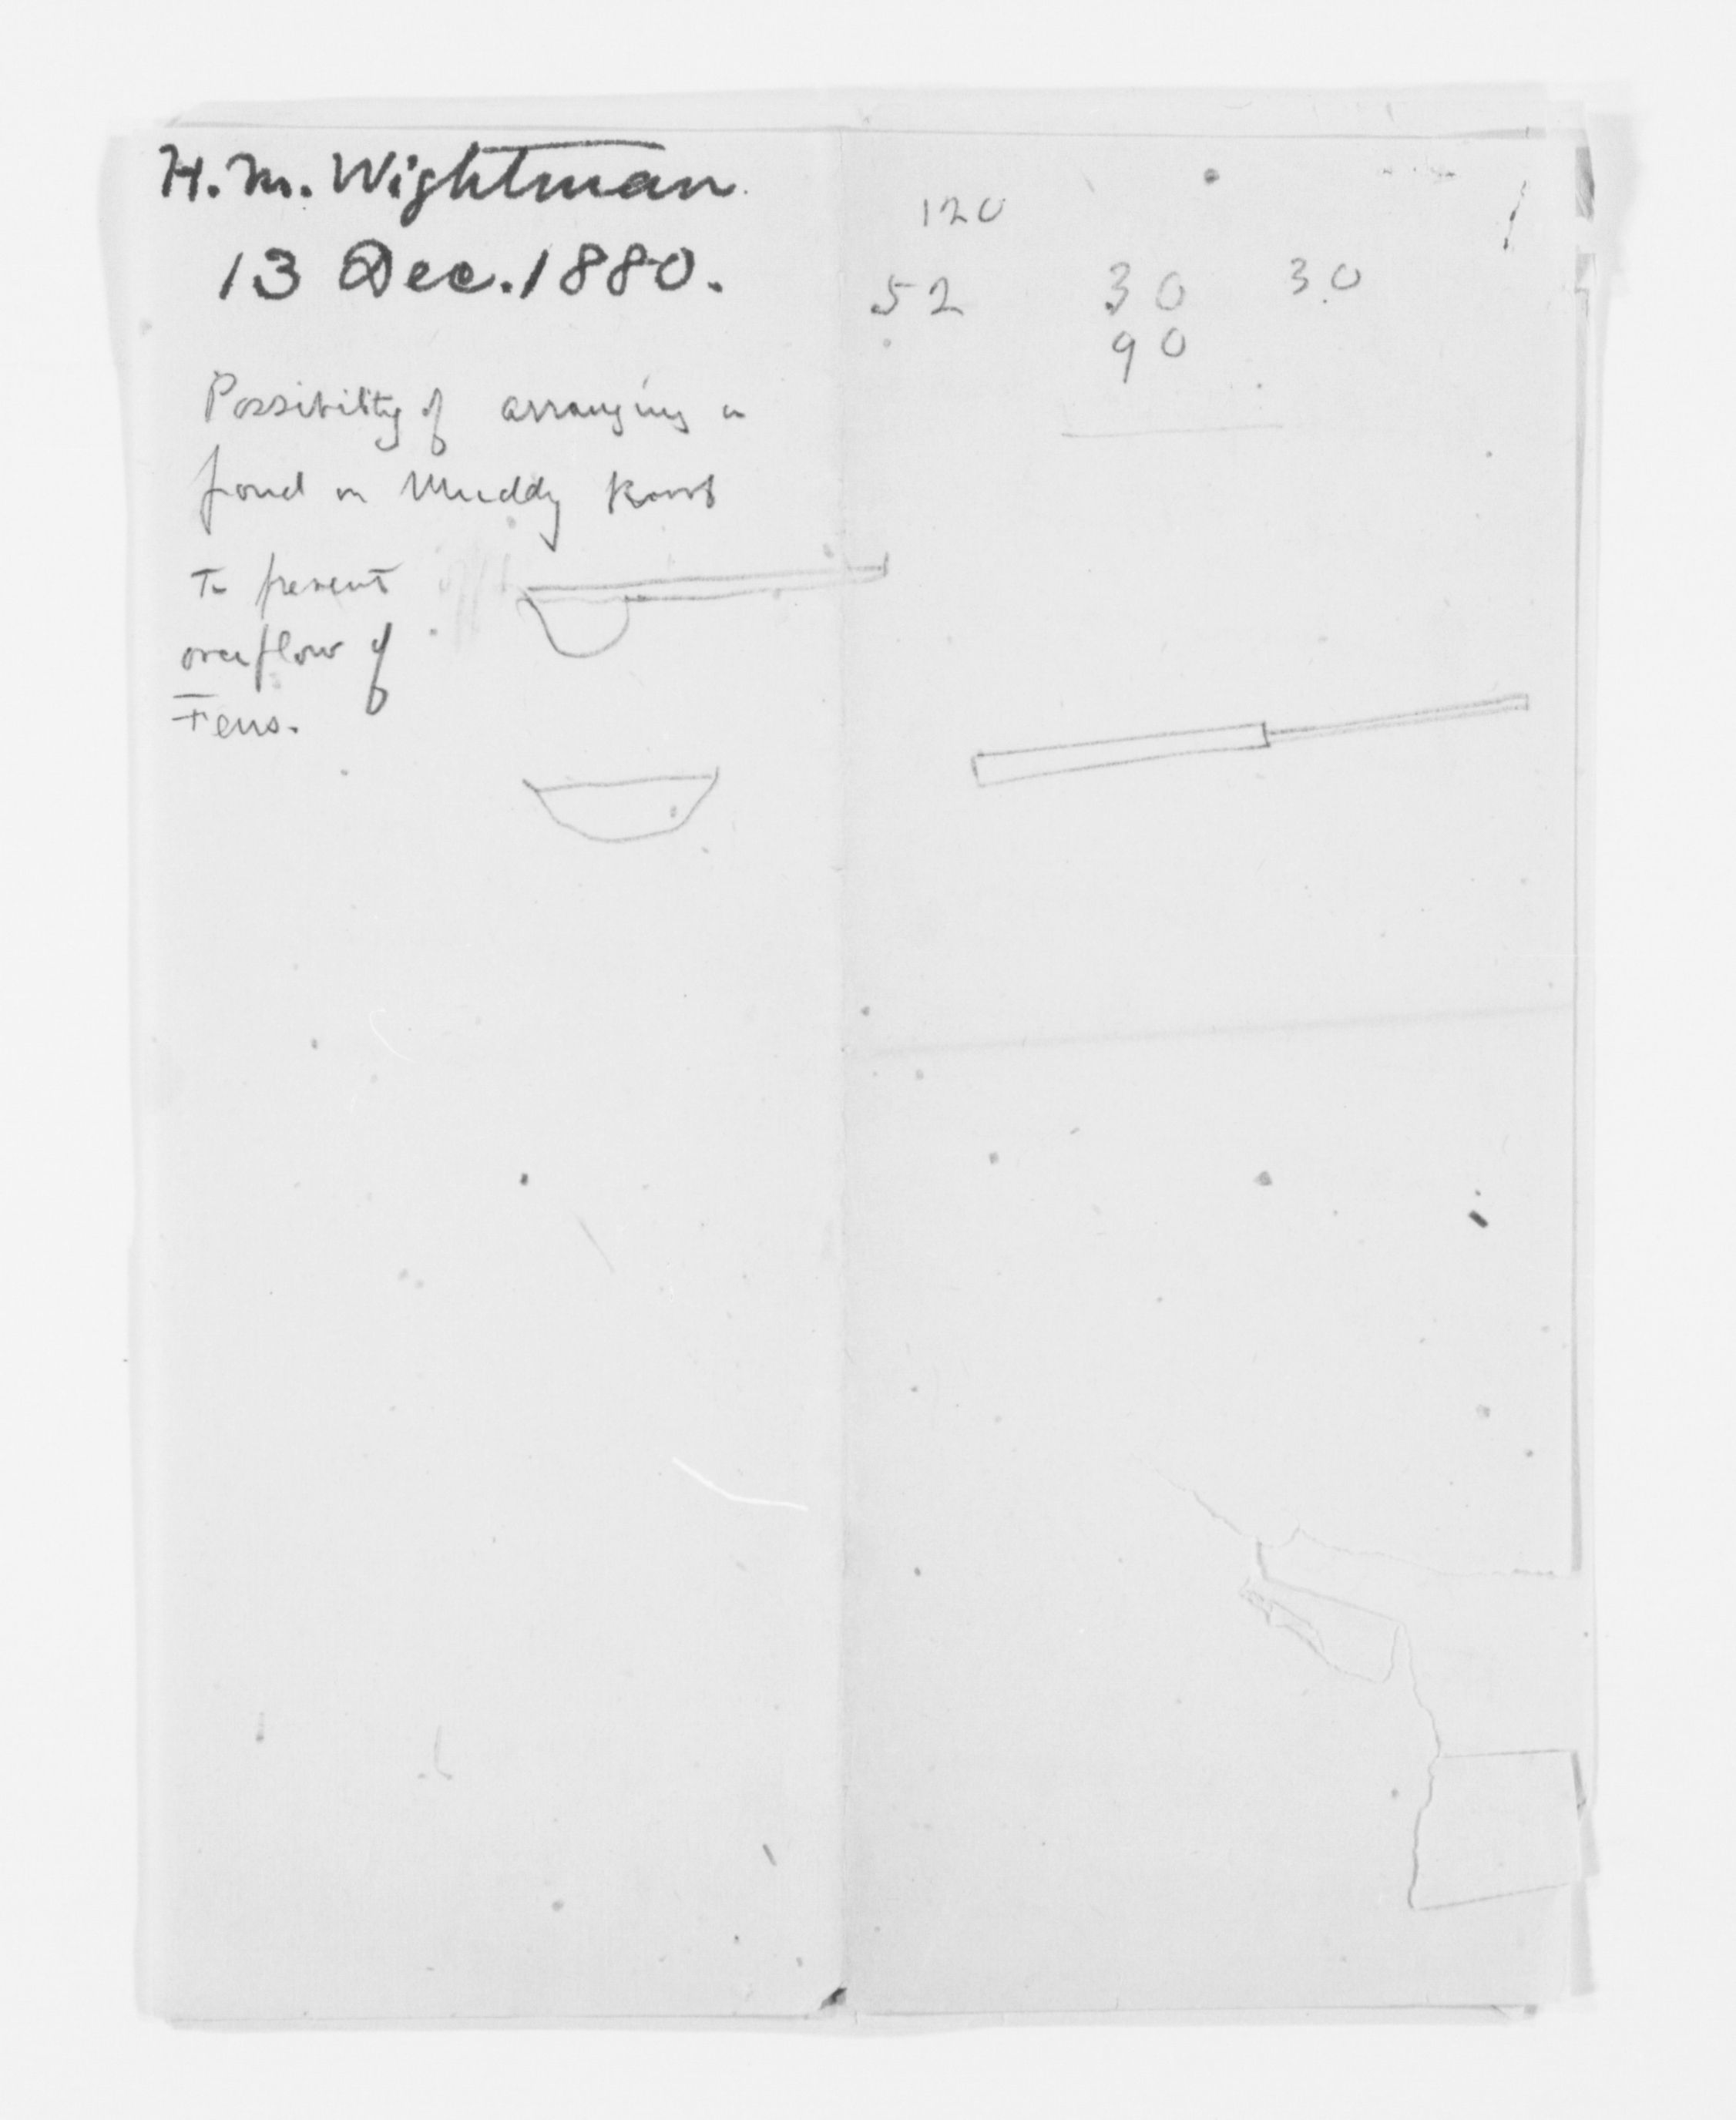 H. M. Wightman
13 Dec. 1880.
Possibility of arranging a
pond in Muddy River
To prevent
overflow of
Fens.
120
52 30 30
90